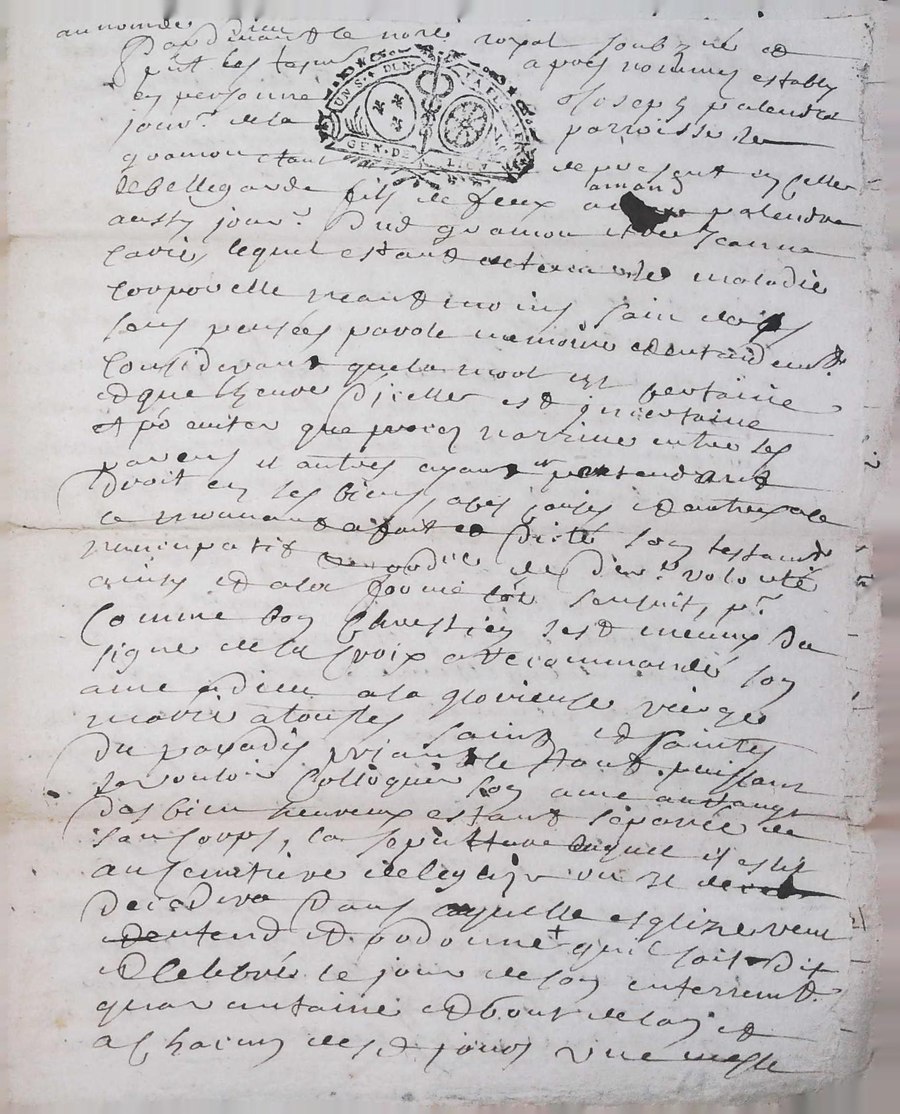 au nom de dieu
Pardevant le no.re royal soubz.né et
p.nt les tesm. apres nommes estably
en personne Joseph palendre
jour.r de la parroisse de
gramon étant de present en celle
de bellegarde fils de feux amand palendre
aussy jour.r dud gramon et de Jeanne
lequel estant detenu de maladie
corporelle neantmoins sain de ses
sens pensées parole memoire et entendem.t
considerant que la mort est certaine
et que lheure d'icelle est incertaine
et p.o eviter que proces narrive entre ses
parens et autres ayant et pretendant
Droit en ses biens, apes jceux et autre sole
ce mouvant a fait et dicté son testam.t
nuncupatif et ordre de der.re volonté
ainsy et a la forme que sensuit, p.r
Comme bon Chrestien sest muny du
signe de la Croix a recommandé son
ame a dieu a la glorieuse vierge
marie a toutes saints et saintes
du paradis priant le tout puissant
de vouloir Colloquer son ame au rang
des bien heureux estant séparée de
son corps, la sepulture duquel il eslit
au cemetiere de leglize ou il
decedera dans laquelle esglize veut
entend et ordonne + quil soit dit
et Celebré le jour de son enterrem.t
quarantaine et bout de lan et
a Chacun desd jours une messe